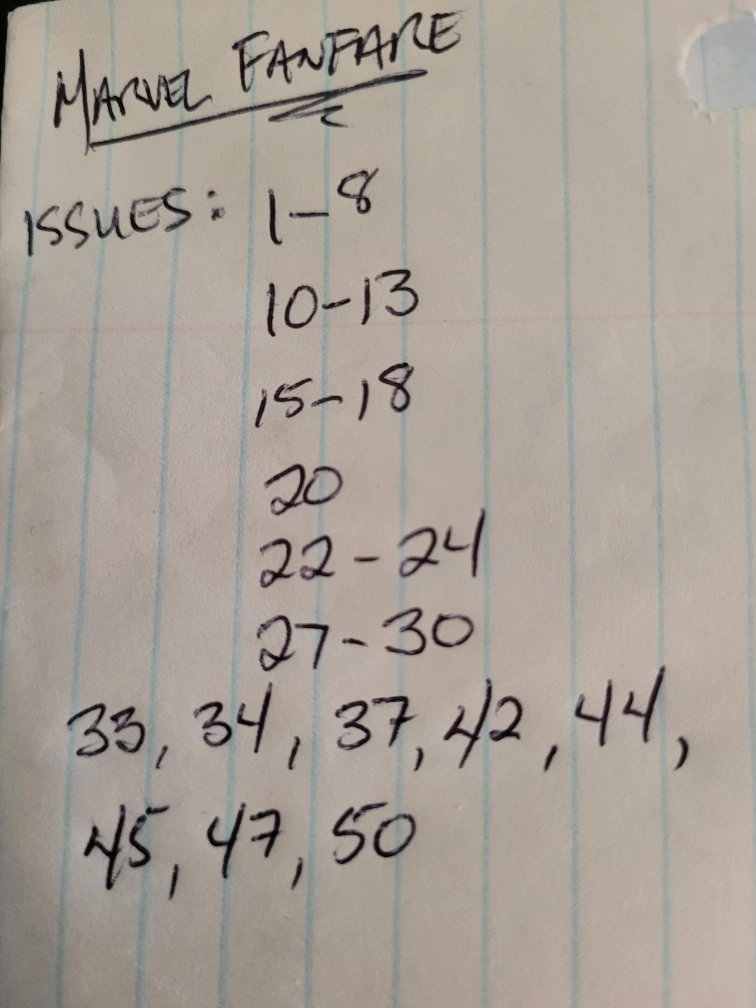 MARVEL FANFARE
ISSUES: 1-8
10-13
15-18
20
22-24
27-30
33, 34, 37, 42, 44,
45, 47, 50